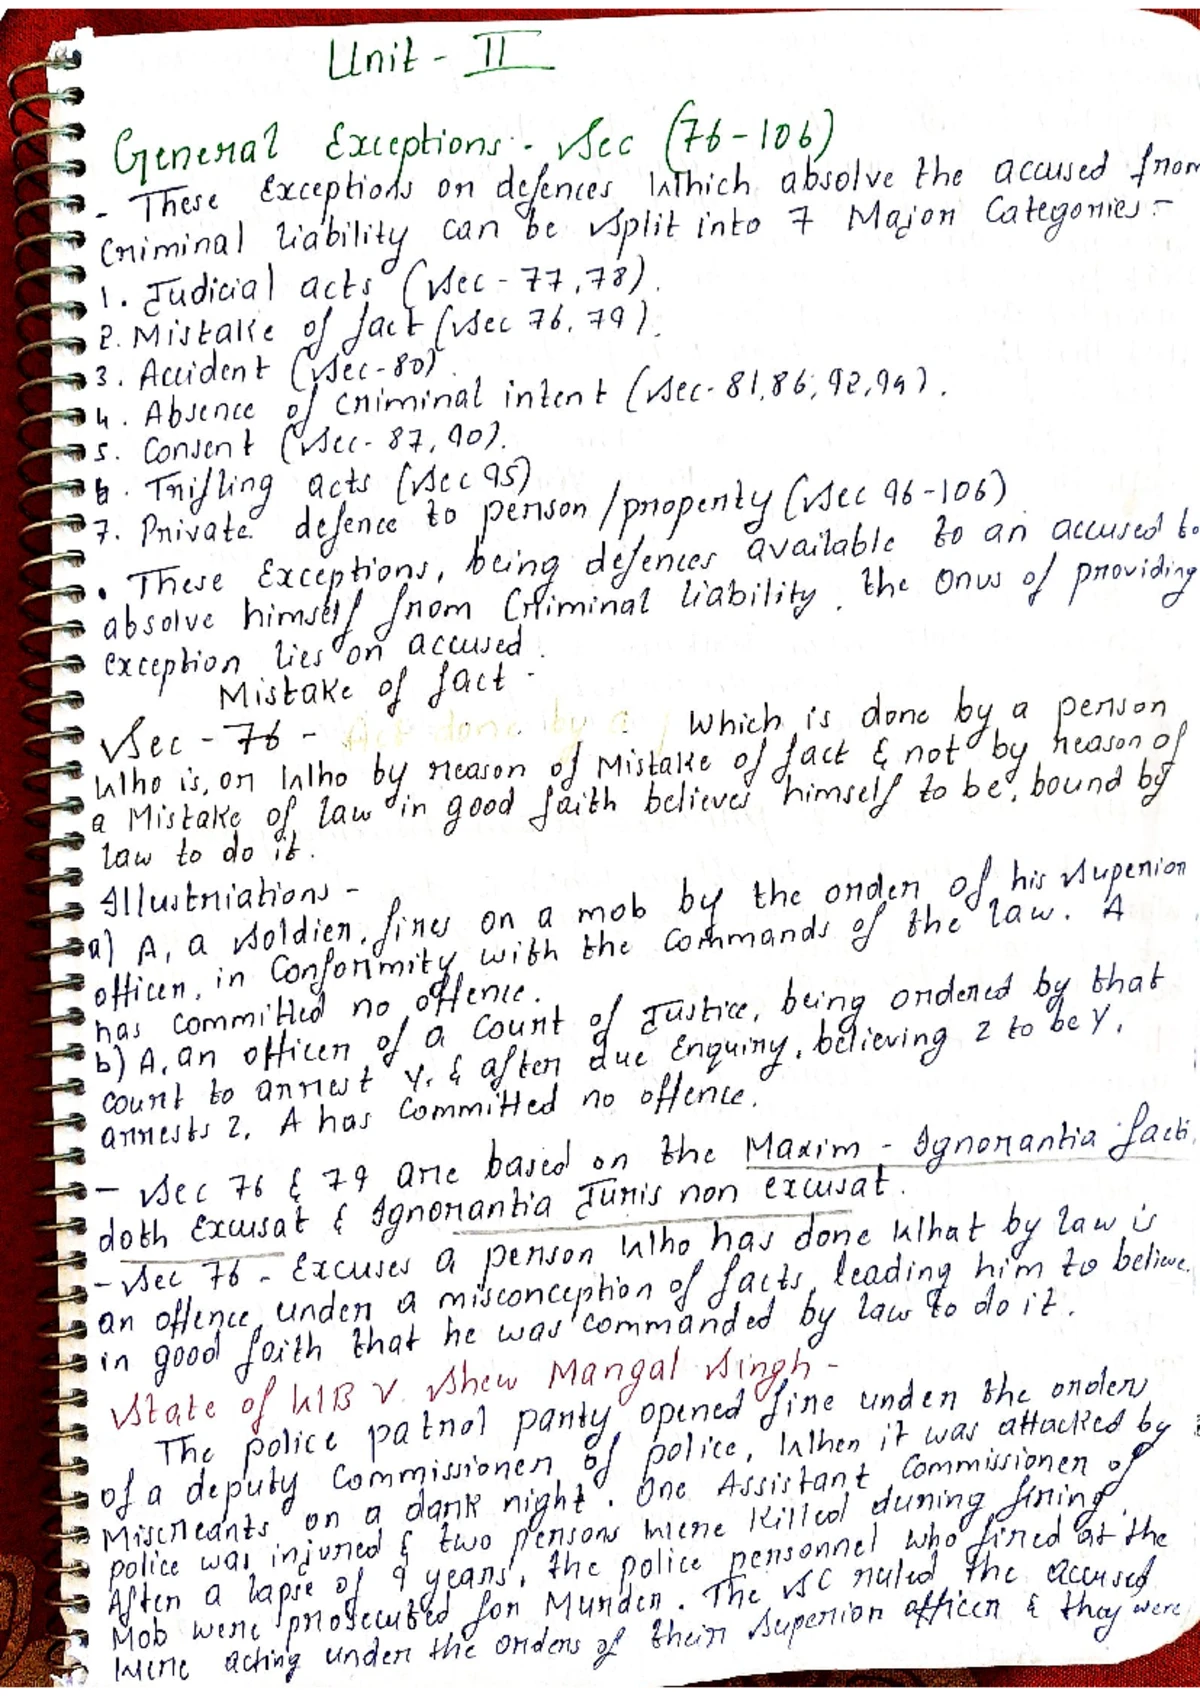 Unit - II
General Exceptions. Sec (76-106)
- These Exceptions or defences which absolve the accused from
Criminal liability can be split into 7 Major Categories:-
1. Judicial acts (Sec - 77, 78).
2. Mistake of fact (Sec 76, 79).
3. Accident (Sec-80).
4. Absence of criminal intent (Sec- 81,86, 92,94).
5. Consent (Sec- 87, 90).
6. Trifling acts (Sec 95)
7. Private defence to person/property (Sec 96-106)
• These Exceptions, being defences available to an accused to
absolve himself from Criminal liability, the onus of providing
exception lies on accused.
Mistake of fact -
Sec - 76 - Act done by a, which is done by a person
who is, or who by reason of Mistake of fact & not by reason of
a Mistake of law in good faith believes himself to be, bound by
law to do it.
Illustriations -
a) A, a soldier, fires on a mob by the order of his superior
officer, in Conformity with the commands of the law. A
has committed no offence.
b) A, an officer of a Court of Justice, being ordered by that
court to arrest Y, & after due Enquiry, believing Z to be Y,
arrests Z, A has Committed no offence.
- Sec 76 & 79 are based on the Maxim - Ignorantia facti
doth Excusat & Ignorantia Juris non excusat.
- Sec 76 - Excuses a person who has done what by law is
an offence, under a misconception of facts, leading him to believe
in good faith that he was commanded by law to do it.
State of WB V. Shew Mangal Singh -
The police patrol party opened fire under the orders
of a deputy Commissioner of police, when it was attacked by
Miscreants on a dark night. One Assistant Commissioner of
police was injured & two persons were killed during firing.
After a lapse of 9 years, the police personnel who fired at the
Mob were prosecuted for Murder. The SC ruled the accused
were acting under the orders of their superior officer & they were